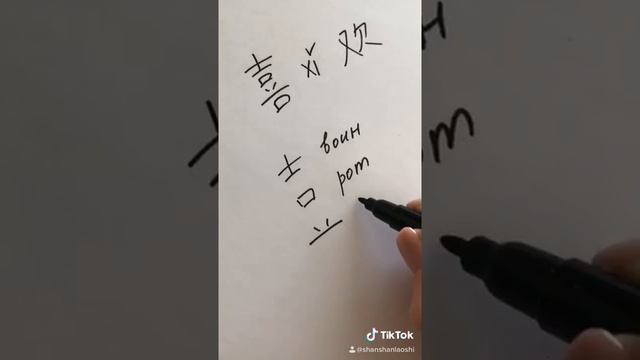 喜 xǐ 欢
士 воин
口 рот
丷一
TikTok
@shanshanlaoshi